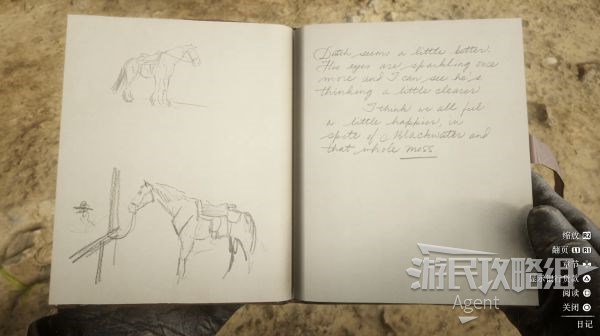 Dutch seems a little better.
His eyes are sparkling once
more and I can see he's
thinking a little clearer
I think we all feel
a little happier, in
spite of Blackwater and
that whole mess
缩放 R2
翻页 L1 R1
阅读
关闭
日记
游民攻略组
Agent